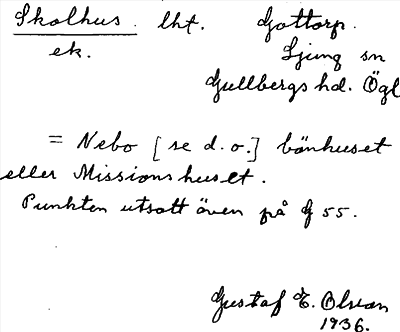 Skolhus. lht. Gottorp.
ek. Ljung sn
Gullbergs hd. Ögl
= Nebo [se d. o.] bönhuset
eller Missionshuset.
Punkten utsatt även på G 55.
Gustaf E. Olsson
1936.